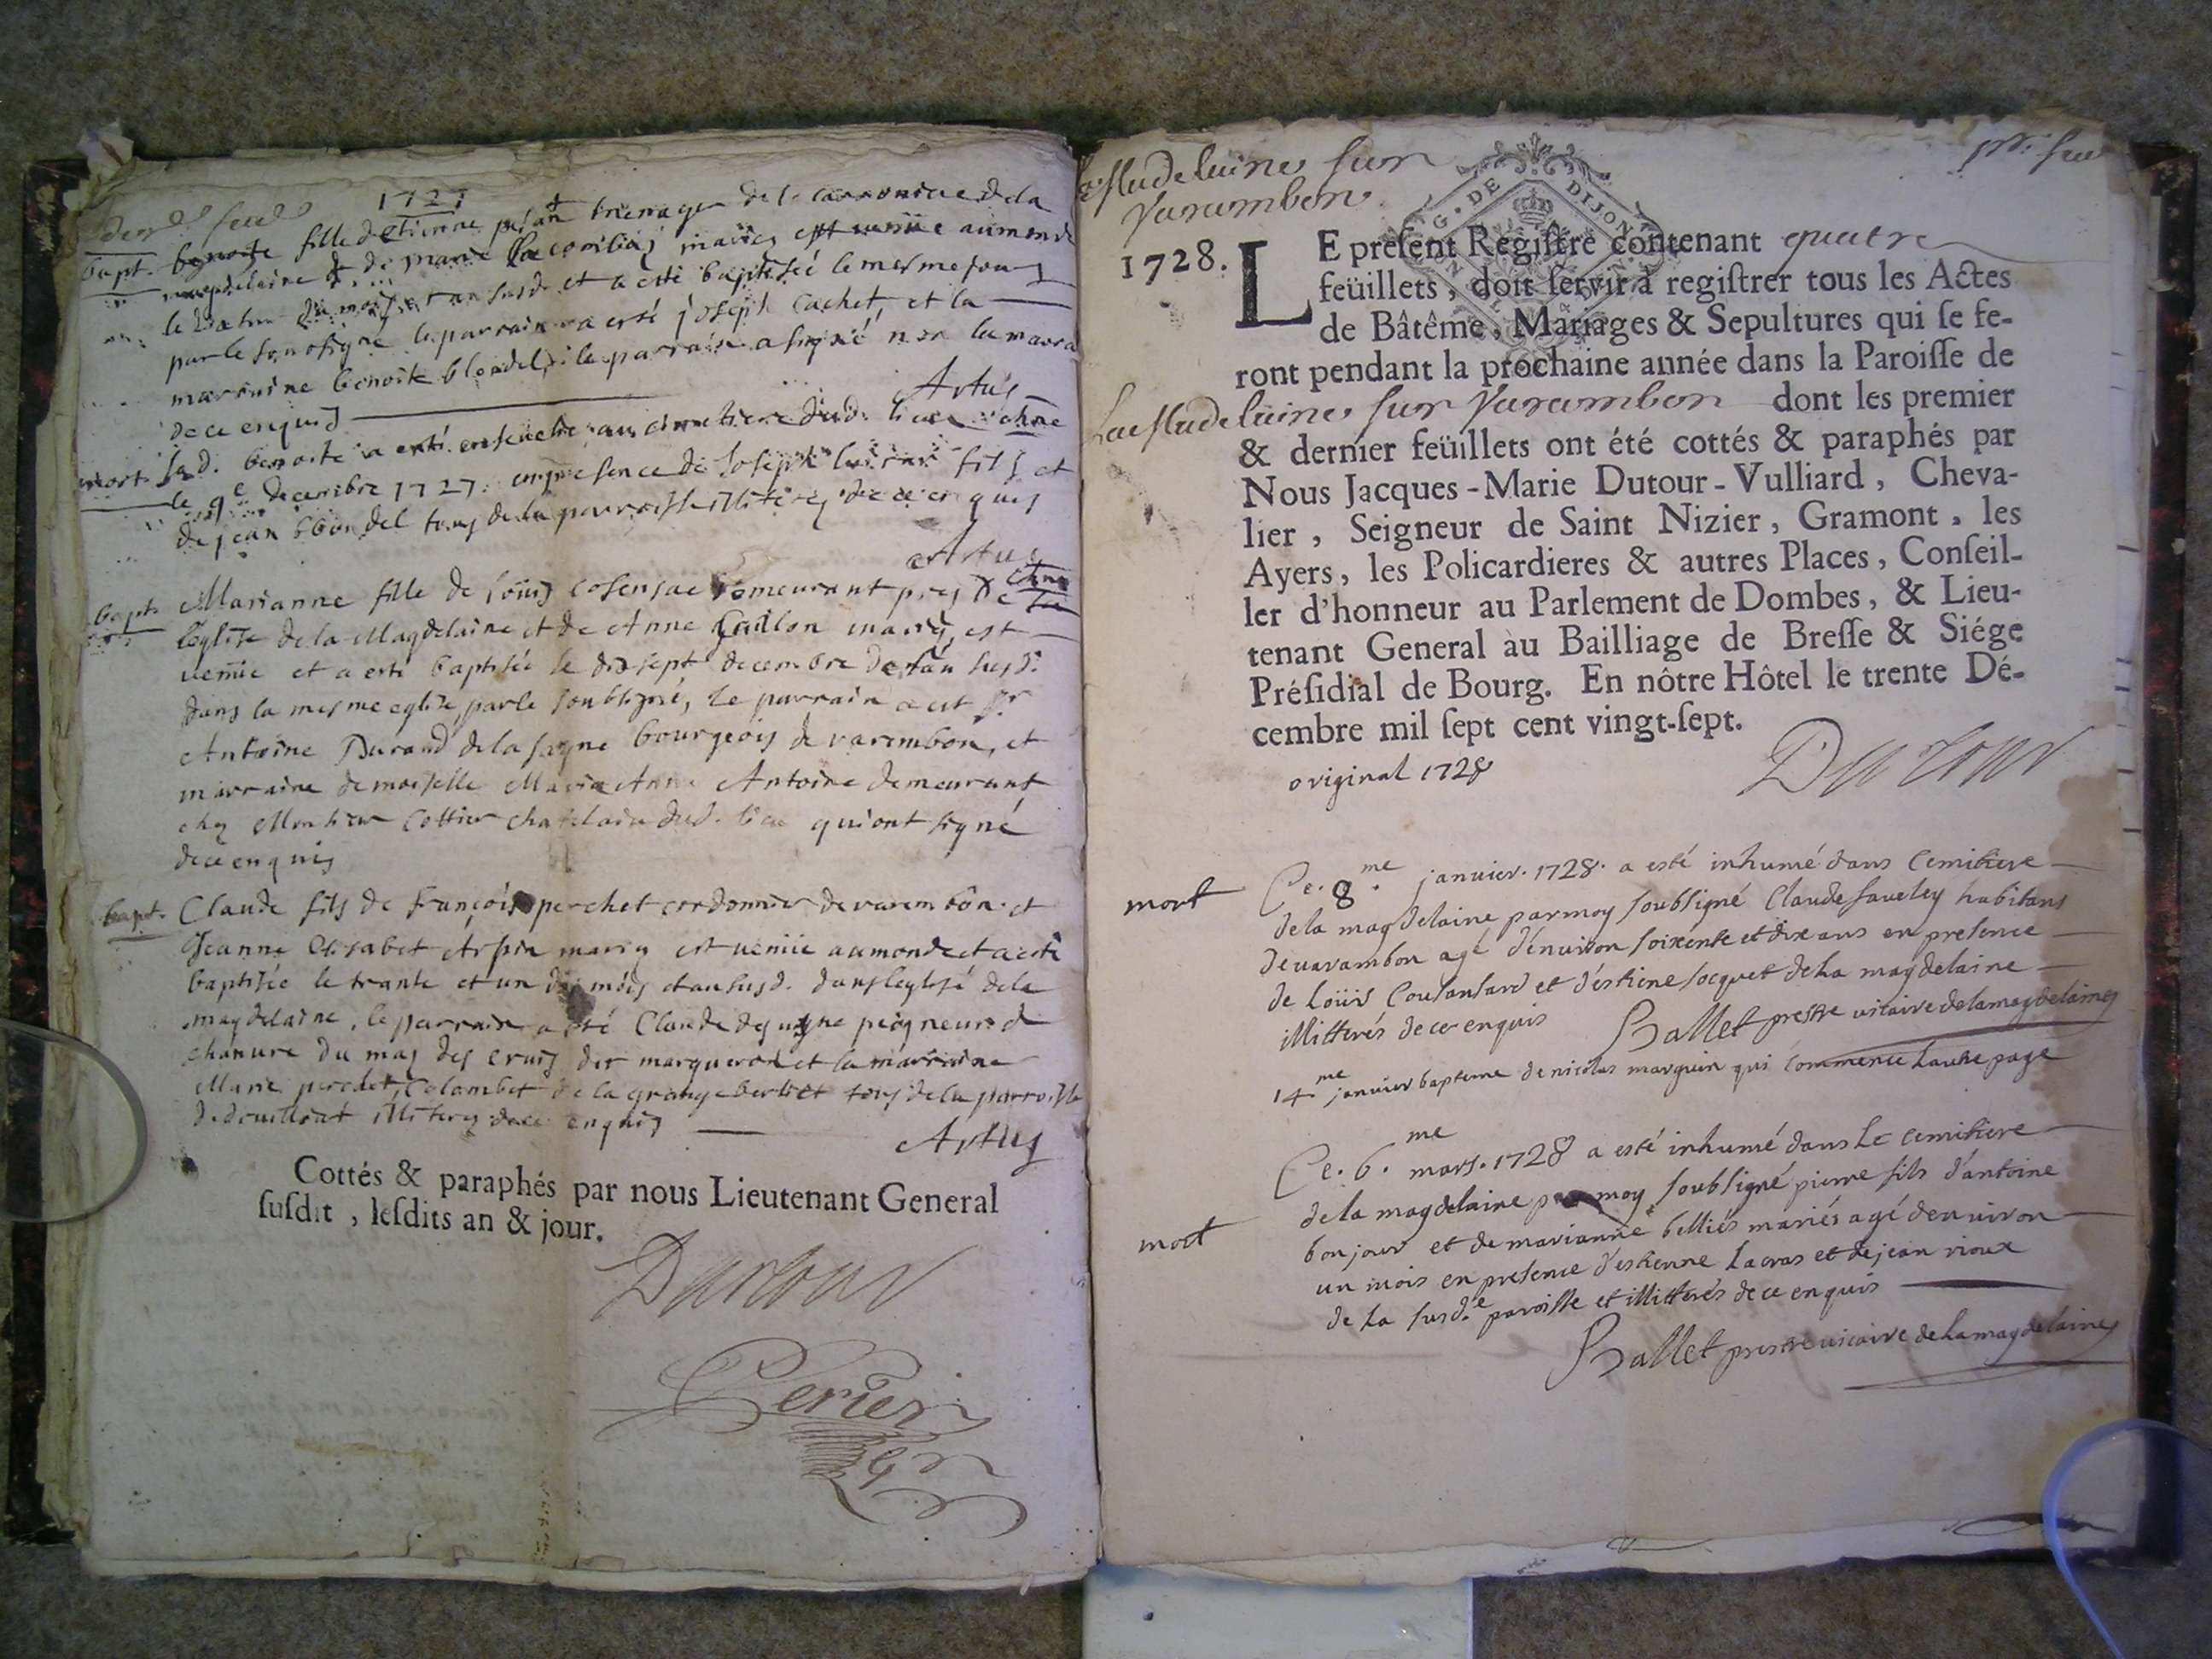 1727
bapt. benoite fille d'Etienne
magdelaine & de marie mariés est venüe au monde
le et an susd. et a esté baptisée le mesme jour
par le sousigné le parrain a esté joseph Cachet, et la
marraine benoite blondel, le parrain a signé non la marra
de ce enquis
Artus
mort. lad. benoite a esté ensevelie au cimetiere dud. lieu
le 9e decembre 1727. en presence de Joseph fils et
de jean blondel tous de la parroisse illiteres de ce enquis
Artus
bapt. Marianne fille de Loüis Cosensac demeurant pres de
l'eglise de la Magdelaine et de Anne mariés, est
venüe et a esté baptisée le dix sept decembre de l'an susd.
dans la mesme eglise, par le soubsigné, le parrain a est Sr
Antoine Durand de la bourgeois de varembon, et
marraine demoiselle Marie Anne Antoine demeurant
chez Monsieur Cottier chatelain dud. lieu qui ont signé
de ce enquis
bapt. Claude fils de François perchet cordonnier de varembon et
Jeanne Elisabet Arpin mariés est venüe au monde et a esté
baptisée le trante et un du mois et an susd. dans leglise de la
magdelaine, le parrain a esté Claude peigneur de
chanure du mas des dit margueron et la marraine
Marie perchet, Colombet de la grange tous de la parroisse
de druillat illiteres de ce enquis
Artus
Cottés & paraphés par nous Lieutenant General
ſuſdit, leſdits an & jour.
Dutour
Perier
Magdelaine sur
Varambon.
G. DE DIJON
1728.
LE preſent Regiſtre contenant quatre
feüillets, doit ſervir à regiſtrer tous les Actes
de Bâtême, Mariages & Sepultures qui ſe fe-
ront pendant la prochaine année dans la Paroiſſe de
La Madelaine sur Varambon dont les premier
& dernier feüillets ont été cottés & paraphés par
Nous Jacques-Marie Dutour-Vulliard, Cheva-
lier, Seigneur de Saint Nizier, Gramont, les
Ayers, les Policardieres & autres Places, Conſeil-
ler d'honneur au Parlement de Dombes, & Lieu-
tenant General àu Bailliage de Breſſe & Siége
Préſidial de Bourg. En nôtre Hôtel le trente Dé-
cembre mil ſept cent vingt-ſept.
original 1728
Dutour
mort Ce. 8.me janvier. 1728. a esté inhumé dans Cemitiere
de la magdelaine par moy soubsigné Claude saveley habitans
de varambon agé d'environ soixente et dix ans en presence
de Loüis Cousansard et d'estiene socquet de La magdelaine
illitterés de ce enquis Ballet prestre vicaire de la magdelaine
14.me janvier bapteme de nicolas marguin qui Commence Lautre page
mort Ce. 6.me mars. 1728 a esté inhumé dans Le Cemitiere
de la magdelaine par moy soubsigné pierre fils d'antoine
bonjour et de marianne belliés mariés agé d'environ
un mois en presence d'estienne Lacras et de jean rioux
de La susd.e paroisse et illitterés de ce enquis
Ballet prestre vicaire de La magdelaine